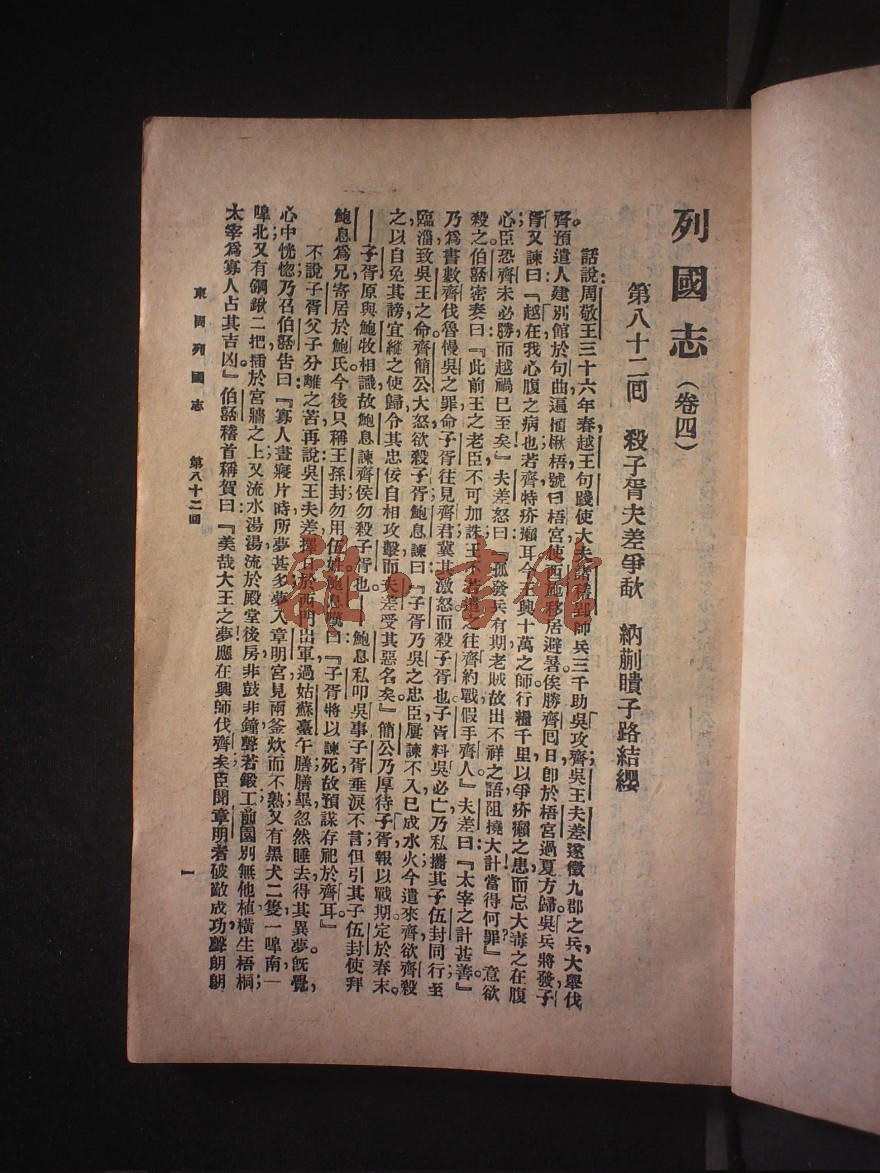 列國志（卷四）
第八十二回　殺子胥夫差爭歃　納蒯瞶子路結纓
話說：周敬王三十六年春，越王句踐使大夫諸稽郢帥兵三千，助吳攻齊；吳王夫差遂徵九郡之兵，大舉伐
齊。預遣人建別館於句曲，遍植楸梧，號曰梧宮，使西施移居避暑。俟勝齊回日，即於梧宮過夏，方歸。吳兵將發，子
胥又諫曰：『越在我，心腹之病也；若齊，特疥癩耳。今王興十萬之師，行糧千里，以爭疥癩之患，而忘大毒之在腹
心，臣恐齊未必勝，而越禍已至矣。』夫差怒曰：『孤發兵有期，老賊故出不祥之語，阻撓大計，當得何罪？』意欲
殺之。伯嚭密奏曰：『此前王之老臣，不可加誅。王不若遣之往齊約戰，假手齊人。』夫差曰：『太宰之計甚善。』
乃爲書，數齊伐魯慢吳之罪，命子胥往見齊君，冀其激怒而殺子胥也。子胥料吳必亡，乃私攜其子伍封同行。至
臨淄，致吳王之命。齊簡公大怒，欲殺子胥；鮑息諫曰：『子胥乃吳之忠臣，屢諫不入，已成水火，今遣來齊，欲齊殺
之，以自免其謗。宜縱之使歸，令其忠佞自相攻擊，而夫差受其惡名矣。』簡公乃厚待子胥，報以戰期，定於春末。
——子胥原與鮑牧相識，故鮑息諫齊侯勿殺子胥也。——鮑息私叩吳事，子胥垂淚不言，但引其子伍封，使拜
鮑息爲兄，寄居於鮑氏，今後只稱王孫封，勿用伍姓。鮑息嘆曰：『子胥將以諫死，故預謀存祀於齊耳。』
不說子胥父子分離之苦。再說：吳王夫差擇日於西門出軍，過姑蘇臺午膳，膳畢，忽然睡去，得其異夢。旣覺，
心中恍惚，乃召伯嚭告曰：『寡人晝寢片時，所夢甚多：夢入章明宮，見兩釜炊而不熟；又有黑犬二隻，一嘷南，一
嘷北；又有鋼鍬二把，插於宮牆之上；又流水湯湯，流於殿堂；後房非鼓非鐘，聲若鍛工；前園別無他植，橫生梧桐；
太宰爲寡人占其吉凶。』伯嚭稽首稱賀曰：『美哉！大王之夢，應在興師伐齊矣。臣聞章明者，破敵成功，聲朗朗
東周列國志　第八十二回
一
雜·書館